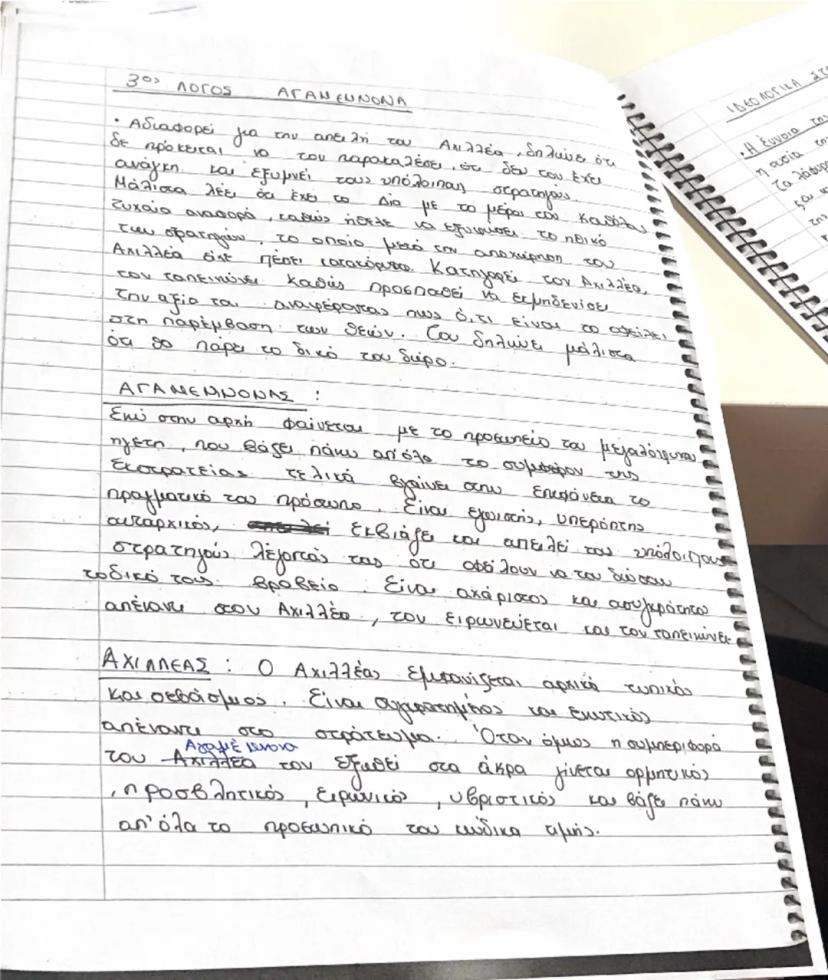 3ος ΛΟΓΟΣ ΑΓΑΜΕΜΝΟΝΑ
• Αδιαφορεί για την απειλή του Αχιλλέα, δηλώνει ότι
δε πρόκειται να τον παρακαλέσει, ότι δεν τον έχει
ανάγκη και εξυμνεί τους υπόλοιπους στρατηγούς.
Μάλιστα λέει ότι έχει το Δία με το μέρος του. Καθόλου
τυχαία αναφορά, καθώς ήθελε να εξυψώσει το ηθικό
των στρατηγών, το οποίο μετά την αποχώρηση του
Αχιλλέα είχε πέσει κατακόρυφα. Κατηγορεί τον Αχιλλέα,
τον ταπεινώνει καθώς προσπαθεί να εκμηδενίσει
την αξία του αναφέροντας πως ό,τι είναι το οφείλει
στη παρέμβαση των θεών. Του δηλώνει μάλιστα
ότι θα πάρει το δικό του δώρο.
ΑΓΑΜΕΜΝΟΝΑΣ :
Ενώ στην αρχή φαίνεται με το προσωπείο του μεγαλόψυχου
ηγέτη, που βάζει πάνω απ'όλα το συμφέρον της
εκστρατείας τελικά βγαίνει στην επιφάνεια το
πραγματικό του πρόσωπο. Είναι εγωιστής, υπερόπτης
αυταρχικός, εκβιάζει και απειλεί τους υπόλοιπους
στρατηγούς λέγοντάς τους ότι οφείλουν να του δώσουν
το δικό τους βραβείο. Είναι αχάριστος και ασυγκράτητος
απέναντι στον Αχιλλέα, τον ειρωνεύεται και τον ταπεινώνει.
ΑΧΙΛΛΕΑΣ : Ο Αχιλλέας εμφανίζεται αρχικά τυπικός
και σεβάσμιος. Είναι συγκρατημένος και ενωτικός
απέναντι στο στράτευμα. Όταν όμως η συμπεριφορά
Αγαμέμνονα
του Αχιλλέα τον εξωθεί στα άκρα γίνεται ορμητικός
, προσβλητικός, ειρωνικός, υβριστικός και βάζει πάνω
απ'όλα το προσωπικό του κώδικα τιμής.
ΙΔΕΟΛΟΓΙΚΑ ΣΤΟ
• Η έννοια του
η ουσία της